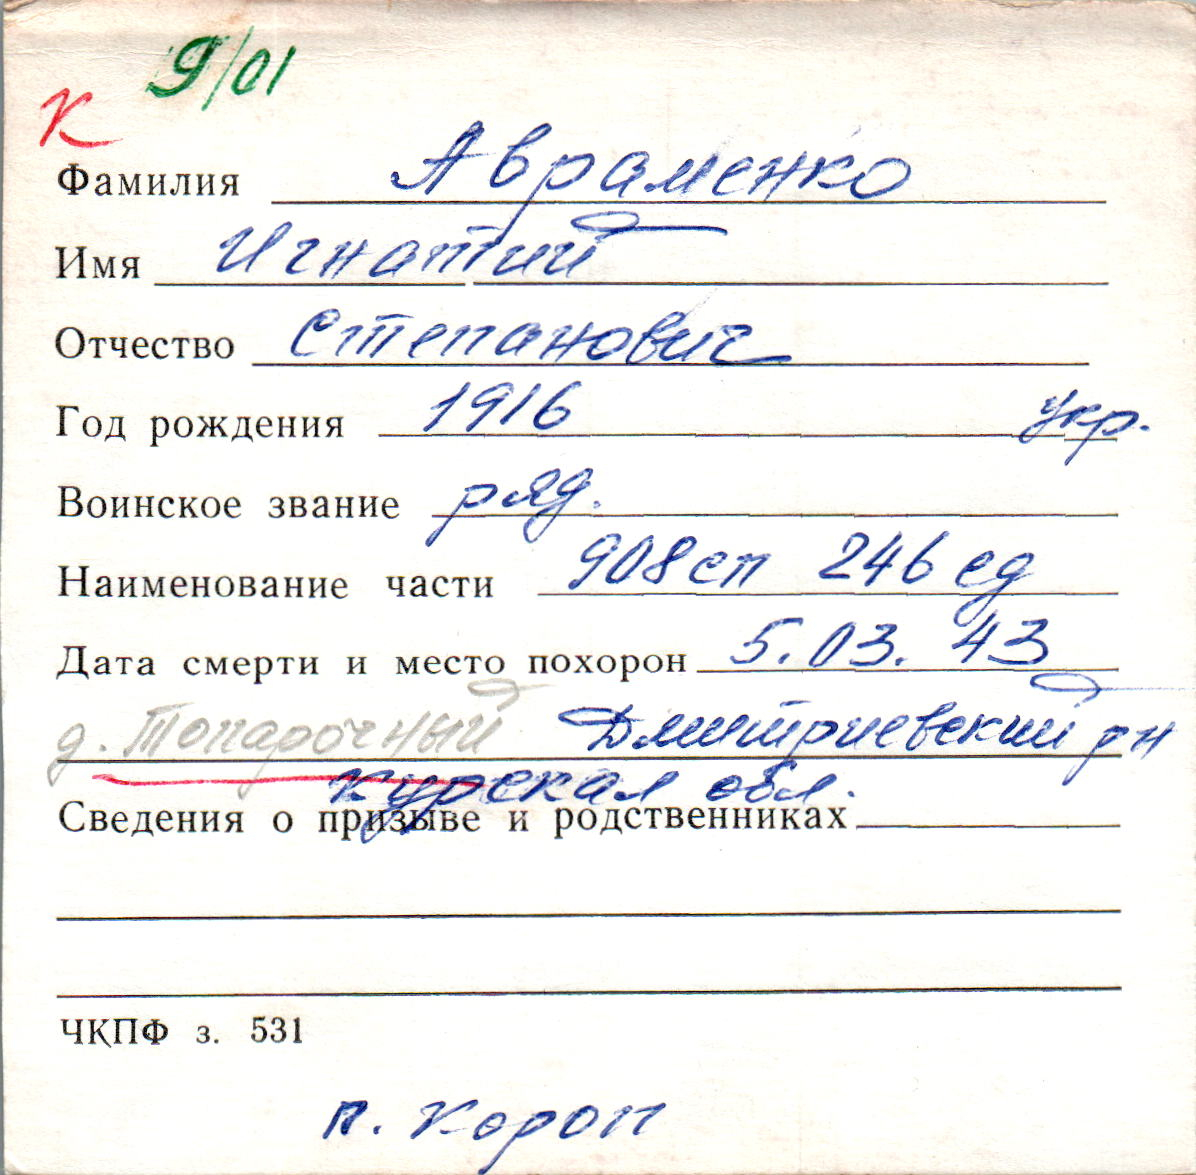 9/01
К
Фамилия Авраменко
Имя Игнатий
Отчество Степанович
Год рождения 1916 укр.
Воинское звание ряд.
Наименование части 908 сп 246 сд
Дата смерти и место похорон 5.03.43
д. Топарочный Дмитриевский рн
Курская обл.
Сведения о призыве и родственниках
ЧКПФ з. 531
п. Короп